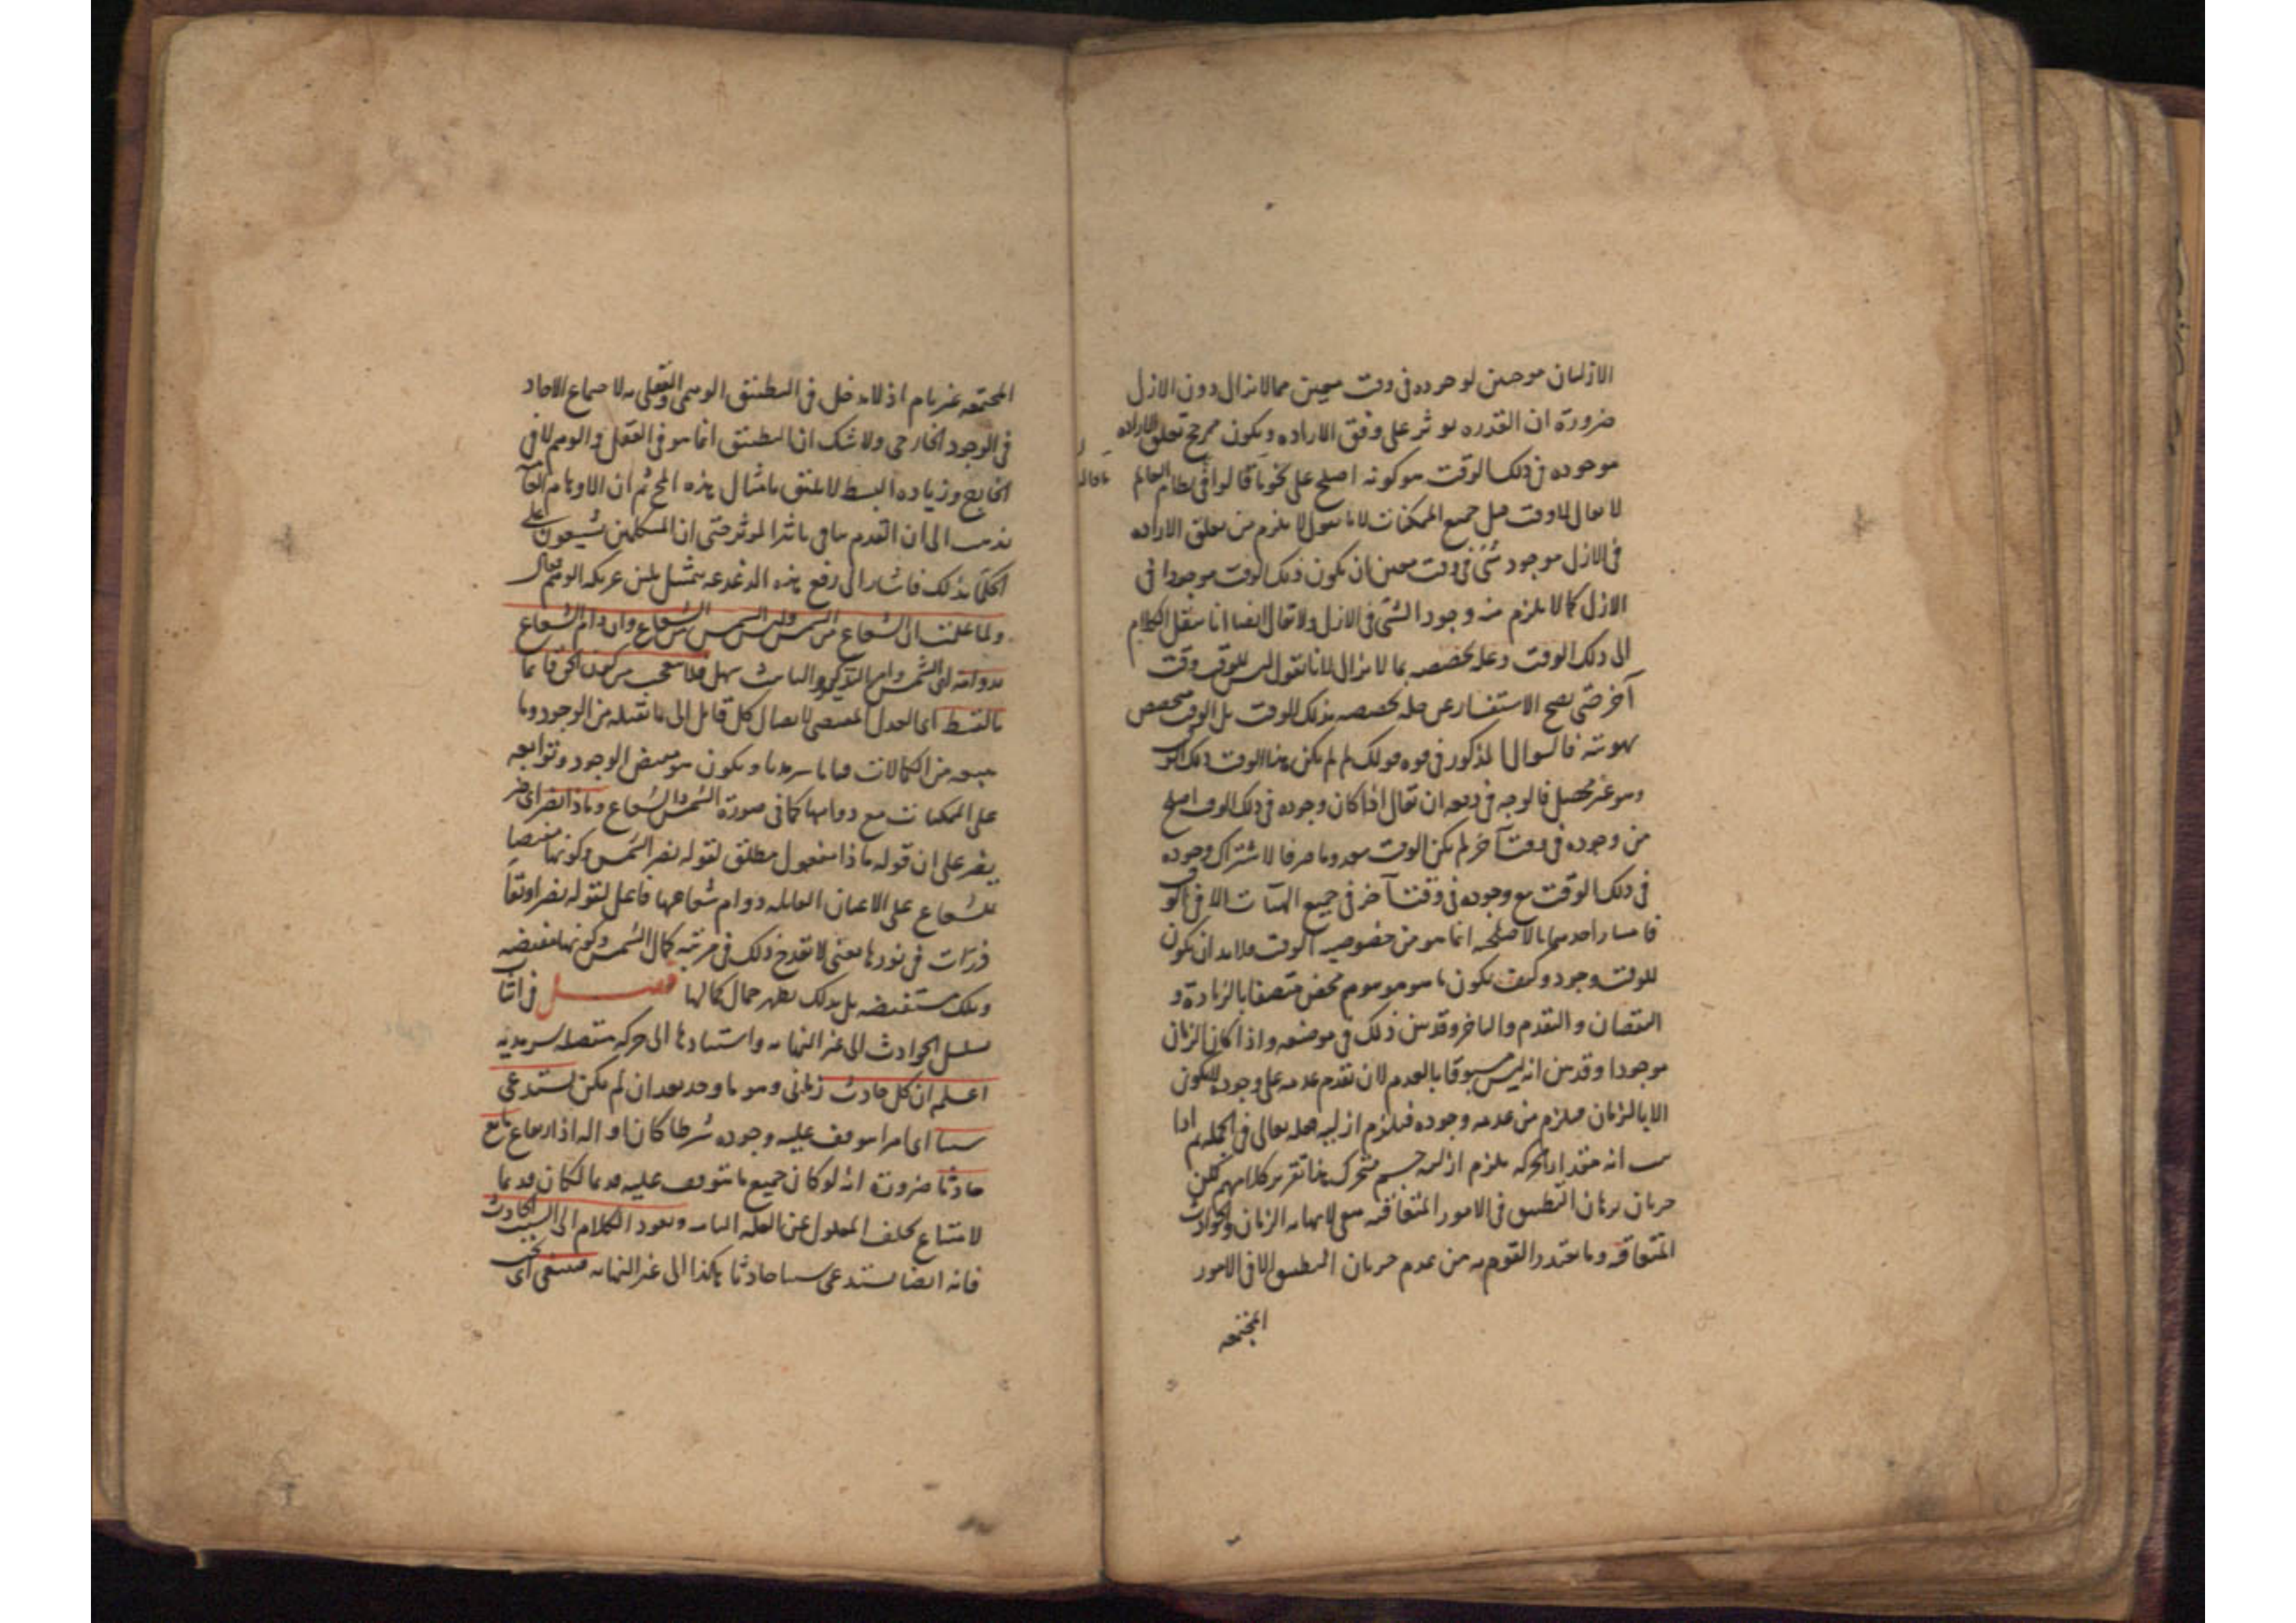 الازليان موجبين لوجوده في وقت معين مما لا يزال دون الازل
ضرورة ان القدره يوثر على وفق الاراده ويكون مرجح تعلق الاراده
موجوده في ذلك الوقت هو كونه اصلح على نحو ما قالوا في نظام العالم
لا يقال لا وقت قبل جميع الممكنات لانا نقول لا يلزم من تعلق الاراده
في الازل بوجود شئ في وقت معين ان يكون ذلك الوقت موجودا في
الازل كما لا يلزم منه وجود الشئ في الازل ولا يقال ايضا انا ننقل الكلام
الى ذلك الوقت وعلة تخصصه بما لا يزال لانا نقول ليس للوقت وقت
آخر حتى يصح الاستفسار عن علة تخصصه بذلك الوقت بل الوقت متخصص
بهويته فالسوال المذكور في قوه قولك لم لم يكن هذا الوقت ذلك الوقت
وهو غير محصل فالوجه في دفعه ان يقال اذا كان وجوده في ذلك الوقت اصلح
من وجوده في وقت آخر لم يكن الوقت معدوما صرفا لاشتراك وجوده
في ذلك الوقت مع وجوده في وقت آخر في جميع الهيآت الا في الوقت
فامتياز احدهما بالاصلحيه انما هو من خصوصيه الوقت فلا بد ان يكون
للوقت وجود وكيف يكون ما هو موهوم محض متصفا بالزيادة و
النقصان والتقدم والتاخر وقد بين ذلك في موضعه واذا كان الزمان
موجودا وقد بين انه ليس مسبوقا بالعدم لان تقدم عدمه على وجوده لا يكون
الا بالزمان فيلزم من عدمه وجوده فيلزم ازليه فعله تعالى في الجمله ثم اذا
ثبت انه مقدار الحركه يلزم ازليه جسم متحرك هذا تقرير كلامهم لكن
جريان برهان التطبيق في الامور المتعاقبه ينفي لا نهايه الزمان والحوادث
المتعاقبه وما اعتذر القوم به من عدم جريان التطبيق الا في الامور
المجتمعه
المجتمعه غير تام اذ لا مدخل في التطبيق الوهمي والعقلي لاجتماع الاحاد
في الوجود الخارجي ولا شك ان التطبيق انما هو في العقل والوهم لا في
الخارج وزياده البسط لا يليق بامثال هذه
يذهب الى ان القدم ينافي تاثير الموثر حتى ان المتكلمين يشنعون على
الحكما بذلك فاشار الى رفع هذه الدغدغه بتمثيل يلين عريكه الوهم فقال
ولما علمت ان الشعاع من الشمس وليس الشمس من الشعاع وان دام الشعاع
بدوامه اي الشمس فلا تتعجب من كون الحق قائما
بالقسط اي العدل المقتضي لايصال كل قابل الى ما يقبله من الوجود وما
يتبعه من الكمالات ويكون هو مفيض الوجود وتوابعه
على الممكنات مع دوامها كما في صورة الشمس والشعاع وماذا يضر اي ضر
يضر على ان قوله ماذا مفعول مطلق لقوله يضر الشمس وكونها مفيضا
للشعاع على الاعيان القابله دوام شعاعها فاعل لقوله يضر او بقا
ذرات في نورها يعني لا يقدح ذلك في مرتبه كمال الشمس وكونها مفيضه
وتلك مستفيضه بل بذلك يظهر جمال كمالها فصل في اثبات
تسلسل الحوادث الى غير النهايه واستنادها الى حركه متصله سرمديه
اعلم ان كل حادث زماني وهو ما وجد بعد ان لم يكن يستدعي
سببا اي امرا يتوقف عليه وجوده شرطا كان او آله او ارتفاع مانع
حادثا ضرورة انه لو كان جميع ما يتوقف عليه قديما لكان قديما
لامتناع تخلف المعلول عن العله التامه ويعود الكلام الى السبب الحادث
فانه ايضا يستدعي سببا حادثا هكذا الى غير النهايه فينبغي اي يجب